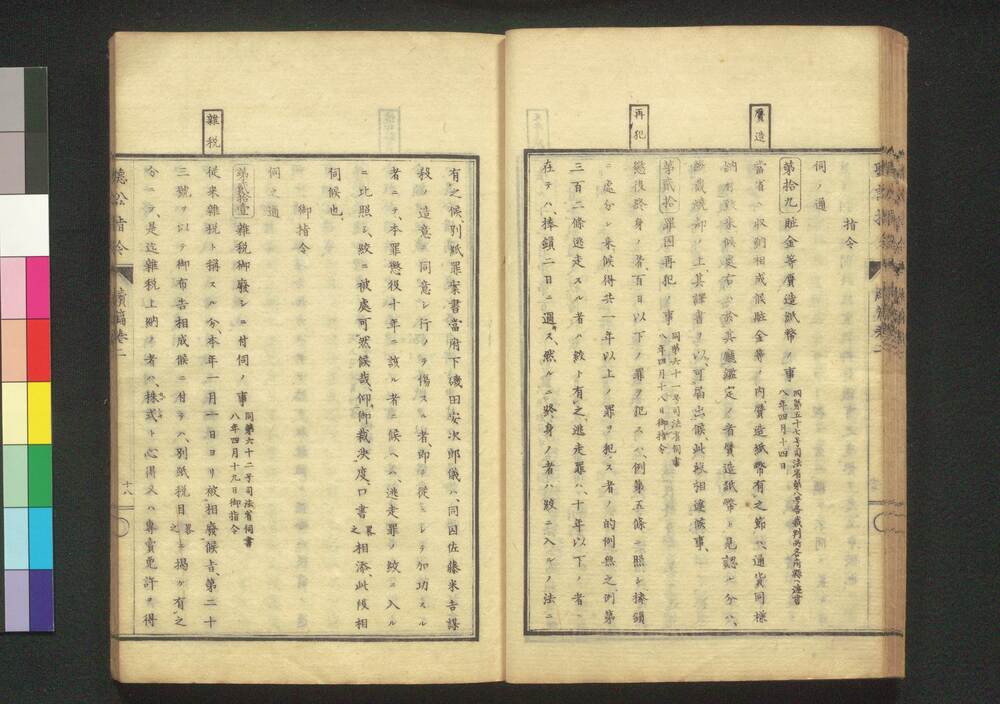 贋造
再犯
指令
伺ノ通
第拾九 賍金等贋造紙幣ノ事
八年四月十四日
當省ヘ収納相成候賍金等ノ内、贋造紙幣有之節ハ、通貨同様
第貳拾 罪囚再犯ノ事
同第六十一号司法省伺書
八年四月十八日御指令
懲役終身ノ者、百日以下ノ罪ヲ犯スハ、例第五條ニ照シ、捧鎖
ニ處分シ来候得共、一年以上ノ罪ヲ犯ス者ノ的例無之、例第
三百二條、逃走スル者ハ、絞ト有之、逃走罪ハ、十年以下ノ者ニ
在テハ、捧鎖二日ニ過ス、然ルニ終身ノ者ハ絞ニ入ルノ法ニ
雜税
有之候、別紙罪案書當府下磯田安次郎儀ハ、同囚佐藤米吉謀
殺ノ造意ニ同意シ行ノヲ傷スル者、即チ從ニシテ加功スル
者ニテ、本罪懲役十年ニ該ル者ニ候ヘハ、逃走罪ノ絞ニ入ル
ニ比照シ、絞ニ被處可然候哉、仰御裁決度、口書畧之相添、此段相
伺候也、
御指令
伺之通
第貳拾壹 雜税御廢シニ付伺ノ事
同第六十二号司法省伺書
八年四月十九日御指令
従来雜税ト稱スル分、本年一月一日ヨリ被相廢候旨、第二十
三號ヲ以テ御布告相成候ニ付テハ、別紙税目畧之ニ掲ケ有之
分ニテ、是迄雜税上納ノ者ハ、株式ト心得又ハ專賣免許ヲ得
聴訟指令
續篇巻二
十八